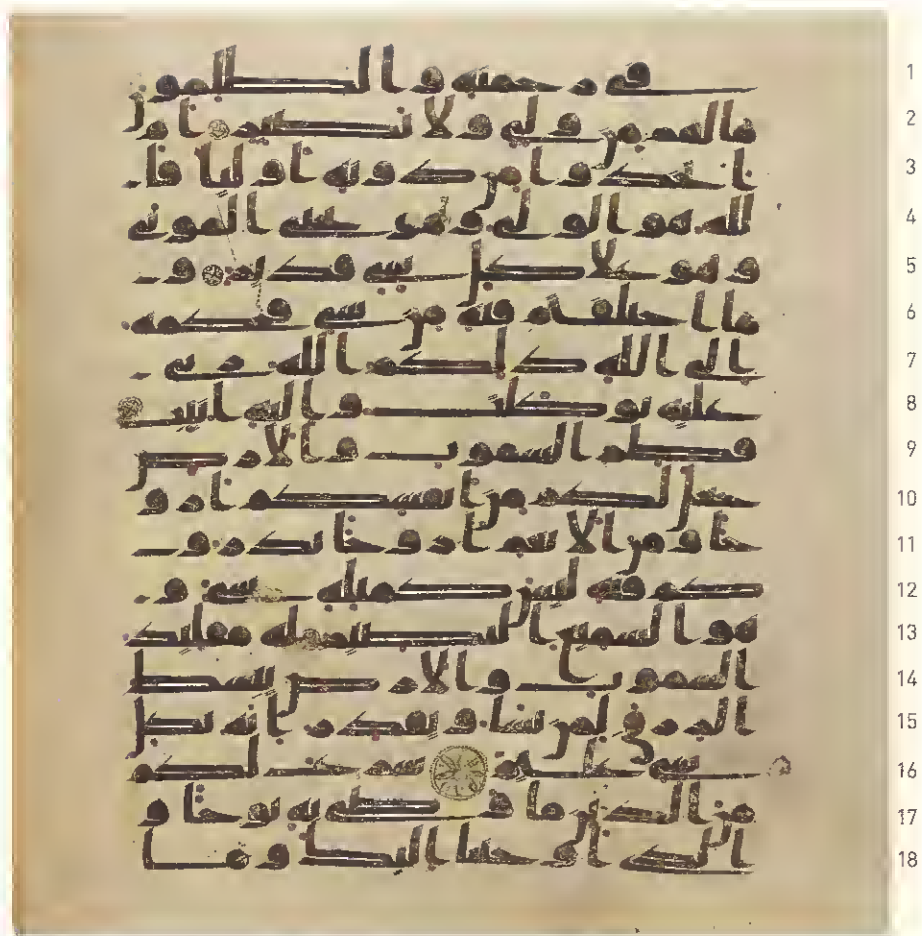 1 في رحمته والظلمون
2 ما لهم من ولي ولا نصير ام ا
3 تخذوا من دونه اوليا فا
4 لله هو الولي وهو يحي الموتى
5 وهو على كل شي قدير و
6 ما اختلفتم فيه من شي فحكمه
7 الى الله ذلكم الله ربي
8 عليه توكلت واليه انيب
9 فطر السموت والارض
10 جعل لكم من انفسكم ازو
11 جا ومن الانعم ازوجا يذرو
12 كم فيه ليس كمثله شي و
13 هو السميع البصير له مقليد
14 السموت والارض يبسط
15 الرزق لمن يشا ويقدر انه بكل
16 شي عليم شرع لكم
17 من الدين ما وصى به نوحا و
18 الذي اوحينا اليك وما